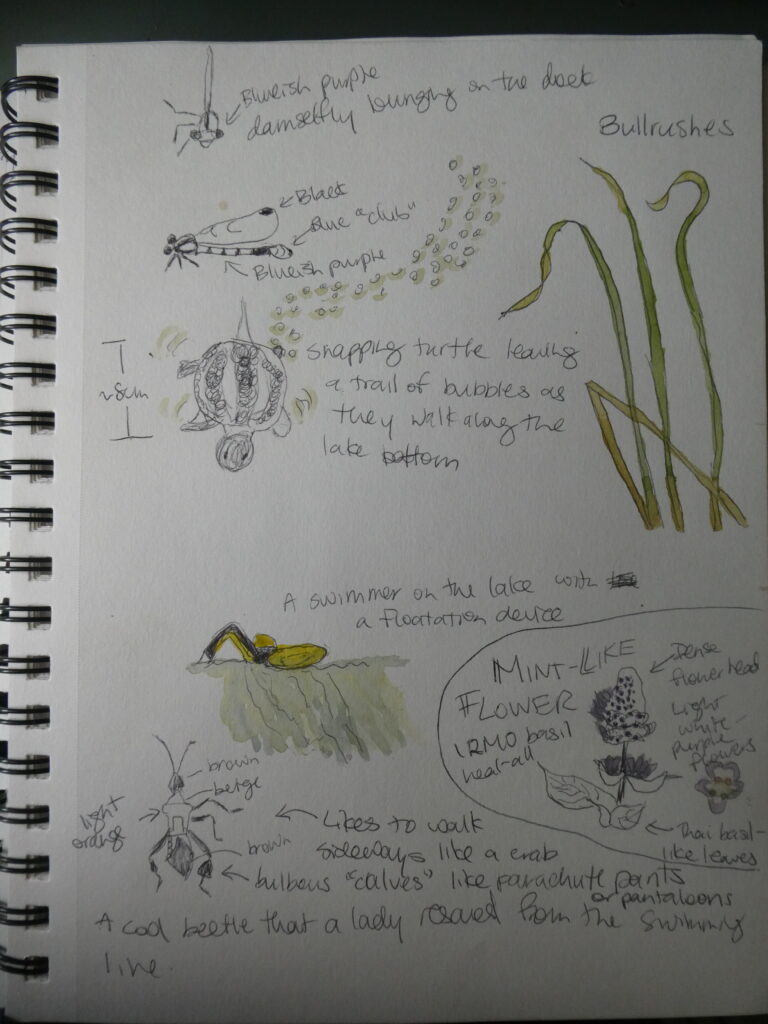 Blueish purple
damselfly lounging on the dock
Bullrushes
Black
Blue "club"
Blueish purple
~8cm
snapping turtle leaving
a trail of bubbles as
they walk along the
lake bottom
A swimmer on the lake with
a floatation device
MINT-LIKE
FLOWER
basil
heal-all
Dense
flower head
Light
white-
purple
flowers
Thai basil-
like leaves
brown
beige
light
orange
brown
Likes to walk
sideways like a crab
bulbous "calves" like parachute pants
or pantaloons
A cool beetle that a lady rescued from the swimming
line.